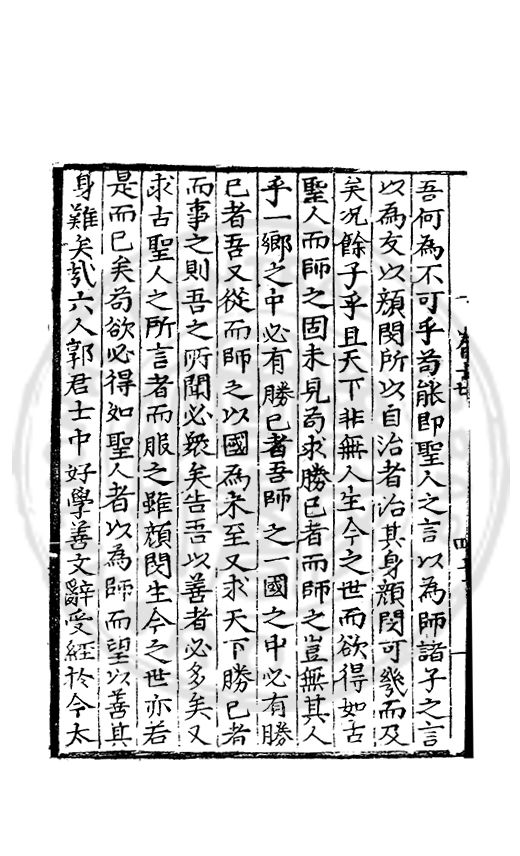 吾何為不可乎苟能即聖人之言以為師諸子之言
以為友以顔閔所以自治者治其身顔閔可幾而及
矣况餘子乎且天下非無人生今之世而欲得如古
聖人而師之固未見苟求勝已者而師之豈無其人
乎一鄉之中必有勝已者吾師之一國之中必有勝
已者吾又從而師之以國為未至又求天下勝已者
而事之則吾之所聞必衆矣告吾以善者必多矣又
求古聖人之所言者而服之雖顔閔生今之世亦若
是而已矣苟欲必得如聖人者以為師而望以善其
身難矣㢤六人郭君士中好學善文辭受經於今太